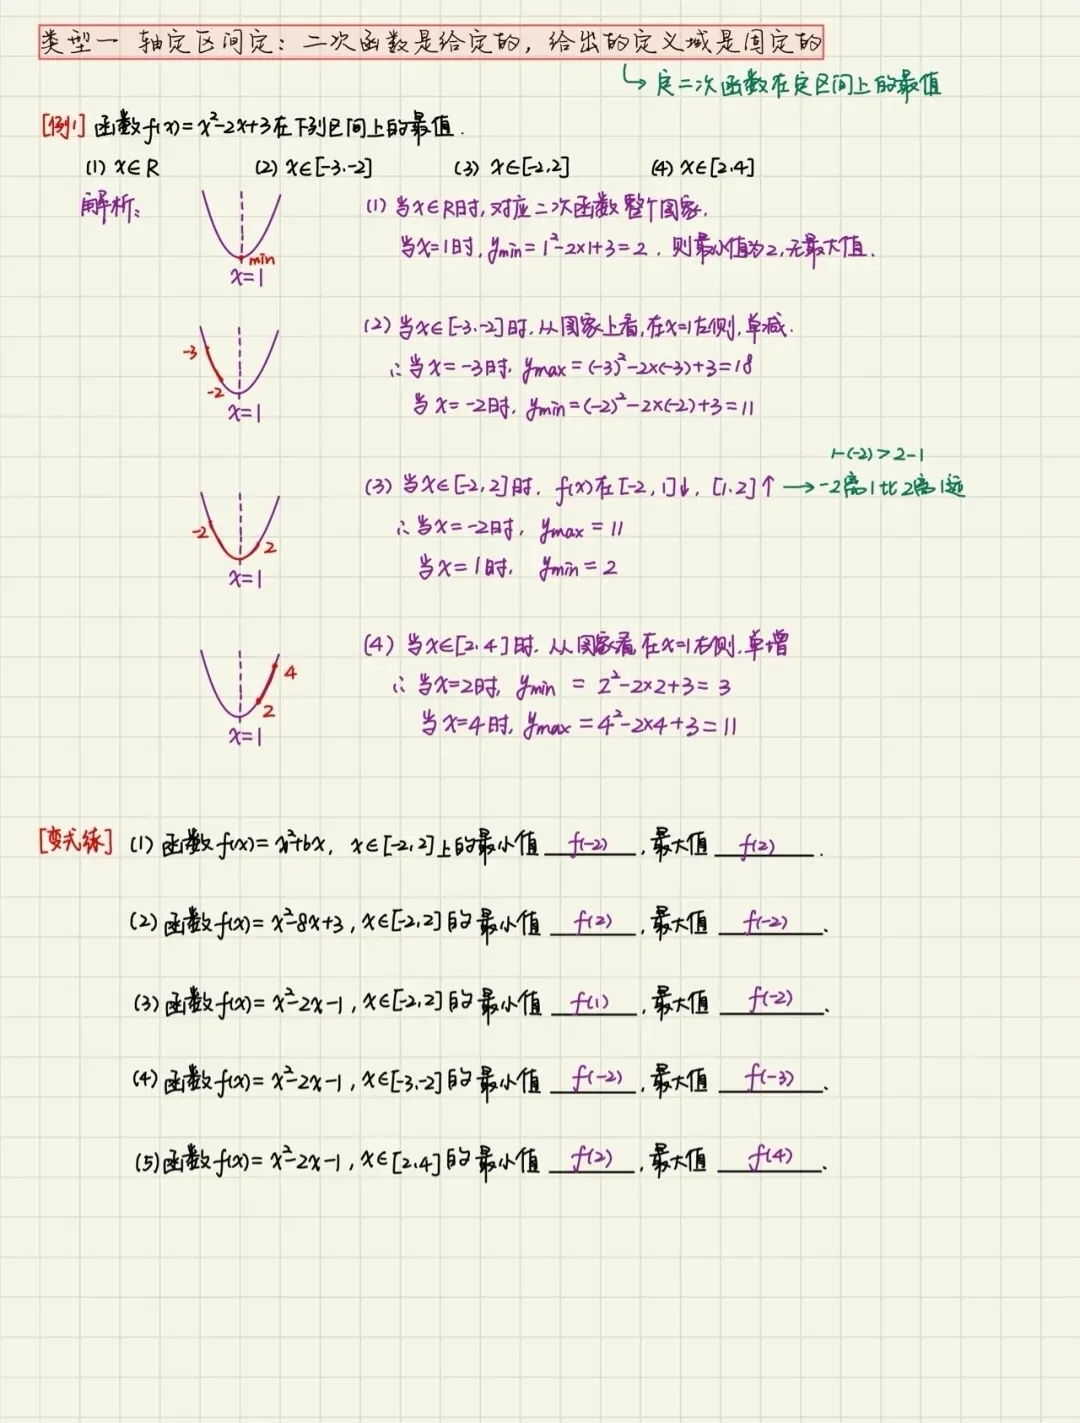 类型一 轴定区间定：二次函数是给定的，给出的定义域是固定的
↳ 定二次函数在定区间上的最值
[例1] 函数f(x)=x²-2x+3在下列区间上的最值.
(1) x∈R (2) x∈[-3,-2] (3) x∈[-2,2] (4) x∈[2,4]
解析:
min
x=1
(1) 当x∈R时,对应二次函数整个图象.
当x=1时, ymin=1²-2×1+3=2. 则最小值为2,无最大值.
-3
-2
x=1
(2) 当x∈[-3,-2]时,从图象上看,在x=1左侧,单减.
∴当x=-3时, ymax=(-3)²-2×(-3)+3=18
当x=-2时, ymin=(-2)²-2×(-2)+3=11
-2
2
x=1
1-(-2)>2-1
(3) 当x∈[-2,2]时, f(x)在[-2,1]↓, [1,2]↑ → -2离1比2离1远
∴当x=-2时, ymax=11
当x=1时, ymin=2
4
2
x=1
(4) 当x∈[2,4]时,从图象看,在x=1右侧,单增
∴当x=2时, ymin=2²-2×2+3=3
当x=4时, ymax=4²-2×4+3=11
[变式练] (1) 函数f(x)=x²+6x, x∈[-2,2]上的最小值 f(-2) ,最大值 f(2) .
(2) 函数f(x)=x²-8x+3, x∈[-2,2]的最小值 f(2) ,最大值 f(-2) .
(3) 函数f(x)=x²-2x-1, x∈[-2,2]的最小值 f(1) ,最大值 f(-2) .
(4) 函数f(x)=x²-2x-1, x∈[-3,-2]的最小值 f(-2) ,最大值 f(-3) .
(5) 函数f(x)=x²-2x-1, x∈[2,4]的最小值 f(2) ,最大值 f(4) .